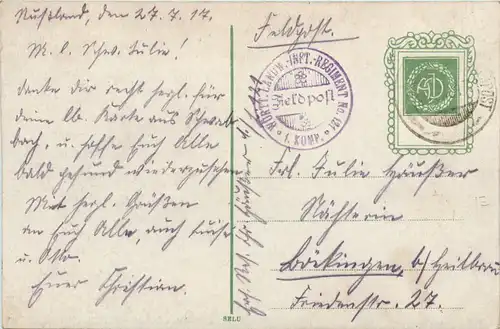 Rußland, den 27.7.17.
M. l. Schw. Julie!
danke dir recht herzl. für
deine lb. Karte aus Schwab-
bach, u. hoffe Euch Alle
bald gesund wiederzusehen
Mit herzl. Grüßen
an Euch Alle, auch Luise
u. Otto.
Euer Christian.
Feldpost.
WÜRTT. LANDW.-INFT.-REGIMENT No. 121
Feldpost
* 1. KOMP. *
Frl. Julie Häußer
Nähterin
Böckingen, b/Heilbronn
Friedenstr. 27.
SELU